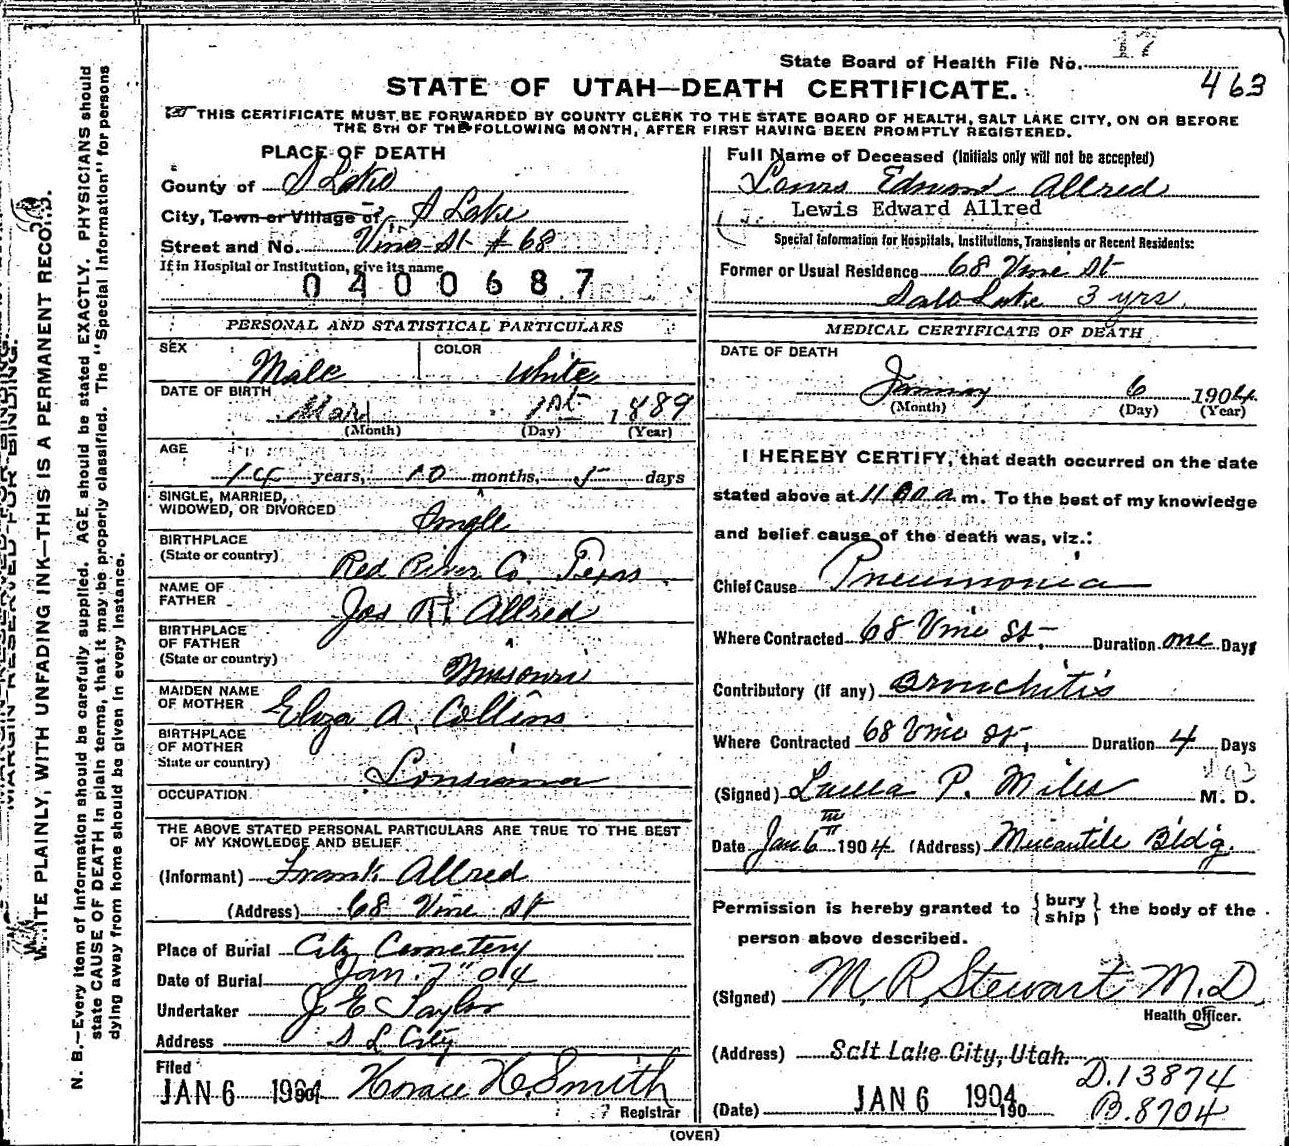 State Board of Health File No. 17
463
STATE OF UTAH—DEATH CERTIFICATE.
THIS CERTIFICATE MUST BE FORWARDED BY COUNTY CLERK TO THE STATE BOARD OF HEALTH, SALT LAKE CITY, ON OR BEFORE
THE 5TH OF THE FOLLOWING MONTH, AFTER FIRST HAVING BEEN PROMPTLY REGISTERED.
PLACE OF DEATH
County of S Lake
City, Town or Village of S Lake
Street and No. Vine St # 68
If in Hospital or Institution, give its name
0400687
PERSONAL AND STATISTICAL PARTICULARS
SEX Male COLOR White
DATE OF BIRTH
1st 1889
(Month) (Day) (Year)
AGE
14 years, 10 months, 5 days
SINGLE, MARRIED,
WIDOWED, OR DIVORCED Single
BIRTHPLACE
(State or country) Red River Co. Texas
NAME OF
FATHER Jos R. Allred
BIRTHPLACE
OF FATHER
(State or country) Missouri
MAIDEN NAME
OF MOTHER Eliza A. Collins
BIRTHPLACE
OF MOTHER
State or country) Louisiana
OCCUPATION
THE ABOVE STATED PERSONAL PARTICULARS ARE TRUE TO THE BEST
OF MY KNOWLEDGE AND BELIEF
(Informant) Frank Allred
(Address) 68 Vine St
Place of Burial City Cemetery
Date of Burial Jan. 7" 04
Undertaker J E Taylor
Address S L City
Filed
JAN 6 1904 Horace H. Smith
Registrar
Full Name of Deceased (Initials only will not be accepted)
Louis Edward Allred
Lewis Edward Allred
Special Information for Hospitals, Institutions, Transients or Recent Residents:
Former or Usual Residence 68 Vine St
Salt Lake 3 yrs.
MEDICAL CERTIFICATE OF DEATH
DATE OF DEATH
January 6 1904
(Month) (Day) (Year)
I HEREBY CERTIFY, that death occurred on the date
stated above at 11 00 a. m. To the best of my knowledge
and belief cause of the death was, viz.:
Chief Cause Pneumonia
Where Contracted 68 Vine St. Duration one Days
Contributory (if any) Bronchitis
Where Contracted 68 Vine St. Duration 4 Days
(Signed) P. Miles M. D.
Date Jan 6th 1904 (Address) Mercantile Bldg.
Permission is hereby granted to { bury ship } the body of the
person above described.
(Signed) M. R. Stewart M. D.
Health Officer.
(Address) Salt Lake City, Utah.
D.13874
(Date) JAN 6 1904 190
B.8704
(OVER)
MARGIN RESERVED FOR BINDING.
WRITE PLAINLY, WITH UNFADING INK—THIS IS A PERMANENT RECORD.
N. B.—Every item of information should be carefully supplied. AGE should be stated EXACTLY. PHYSICIANS should
state CAUSE OF DEATH in plain terms, that it may be properly classified. The "Special Information" for persons
dying away from home should be given in every instance.